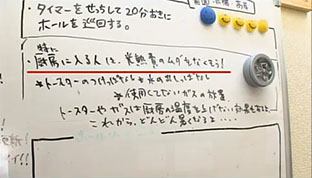 ・タイマーをせっちして20分おきに
ホールを巡回する。
特に
・厨房に入る人は、光熱費のムダをなくそう!
*トースターのつけっぱなし *水の出しっぱなし
*使用してないガスの放置
トースターやガスは厨房の温度を上げない効果もある
これから、どんどん暑くなる…